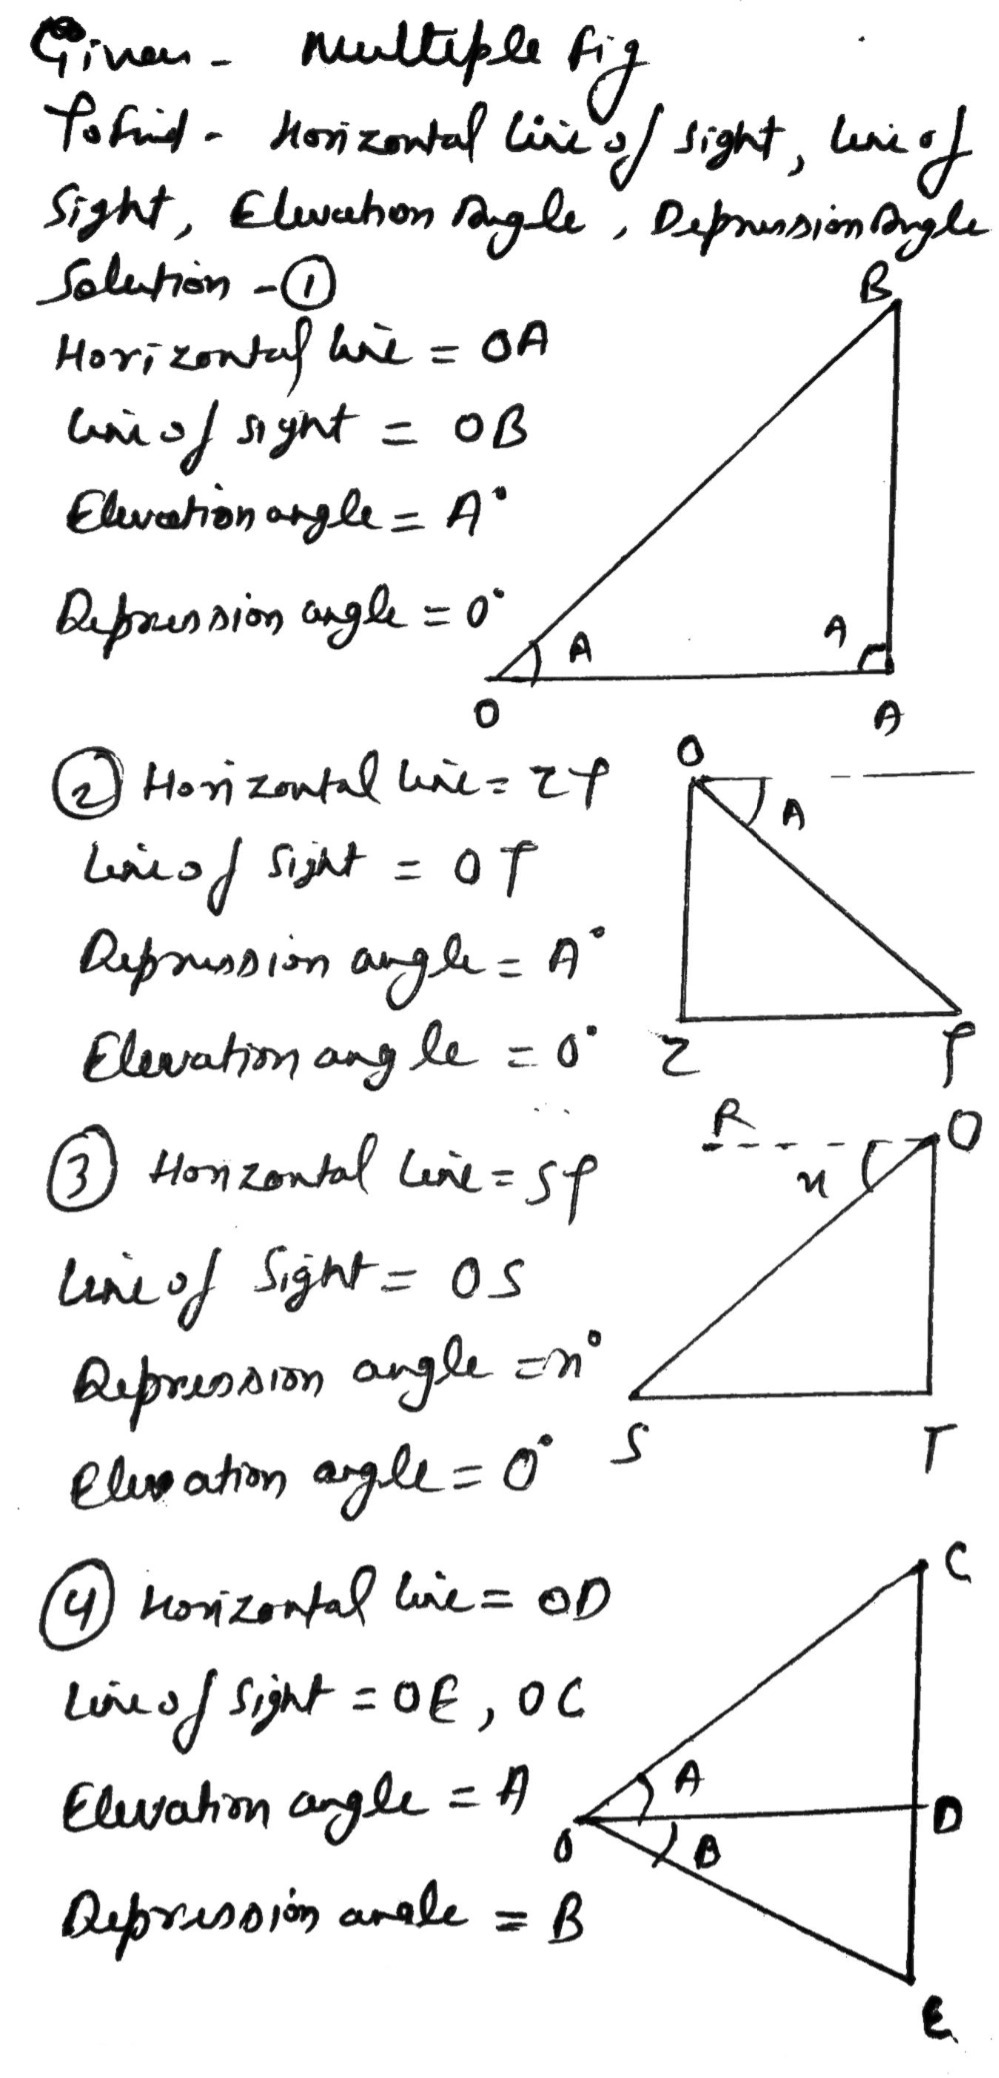 Given - Multiple fig
To find - Horizontal line of sight, line of
Sight, Elevation Angle, Depression Angle
Solution - ①
Horizontal line = OA
line of sight = OB
Elevation angle = A°
Depression angle = 0°
B
A
A
O
A
② Horizontal line = ZP
Line of Sight = OP
Depression angle = A°
Elevation angle = 0°
O
A
Z
P
③ Horizontal line = SP
Line of Sight = OS
Depression angle = x°
Elevation angle = 0°
R
O
x
S
T
④ Horizontal line = OD
Line of Sight = OE, OC
Elevation angle = A
Depression angle = B
C
A
O
D
B
E